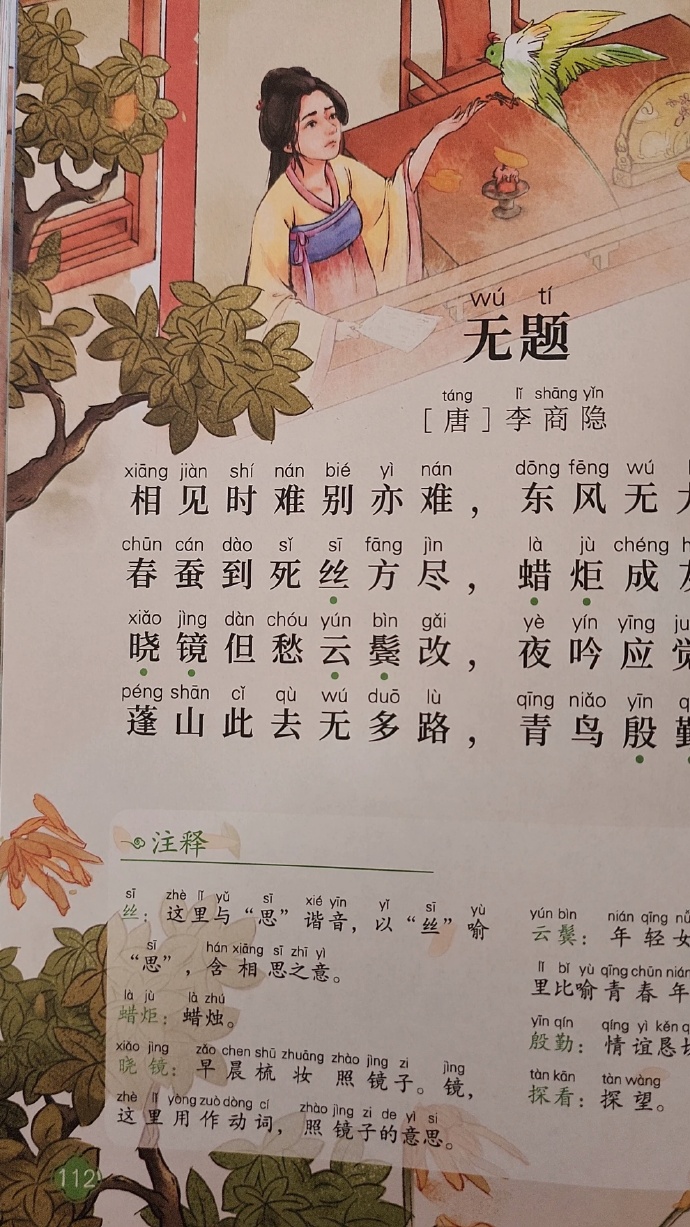 wú tí
无题
táng lǐ shāng yǐn
［唐］李商隐
xiāng jiàn shí nán bié yì nán dōng fēng wú
相见时难别亦难，东风无
chūn cán dào sǐ sī fāng jìn là jù chéng
春蚕到死丝方尽，蜡炬成
xiǎo jìng dàn chóu yún bìn gǎi yè yín yīng
晓镜但愁云鬓改，夜吟应觉
péng shān cǐ qù wú duō lù qīng niǎo yīn
蓬山此去无多路，青鸟殷
注释
sī zhè lǐ yǔ sī xié yīn yǐ sī yù
丝：这里与“思”谐音，以“丝”喻
sī hán xiāng sī zhī yì
“思”，含相思之意。
là jù là zhú
蜡炬：蜡烛。
xiǎo jìng zǎo chen shū zhuāng zhào jìng zi jìng
晓镜：早晨梳妆照镜子。镜，
zhè lǐ yòng zuò dòng cí zhào jìng zi de yì si
这里用作动词，照镜子的意思。
yún bìn nián qīng
云鬓：年轻女
lǐ bǐ yù qīng chūn nián
里比喻青春年
yīn qín qíng yì kěn
殷勤：情谊恳切
tàn kān tàn wàng
探看：探望。
112